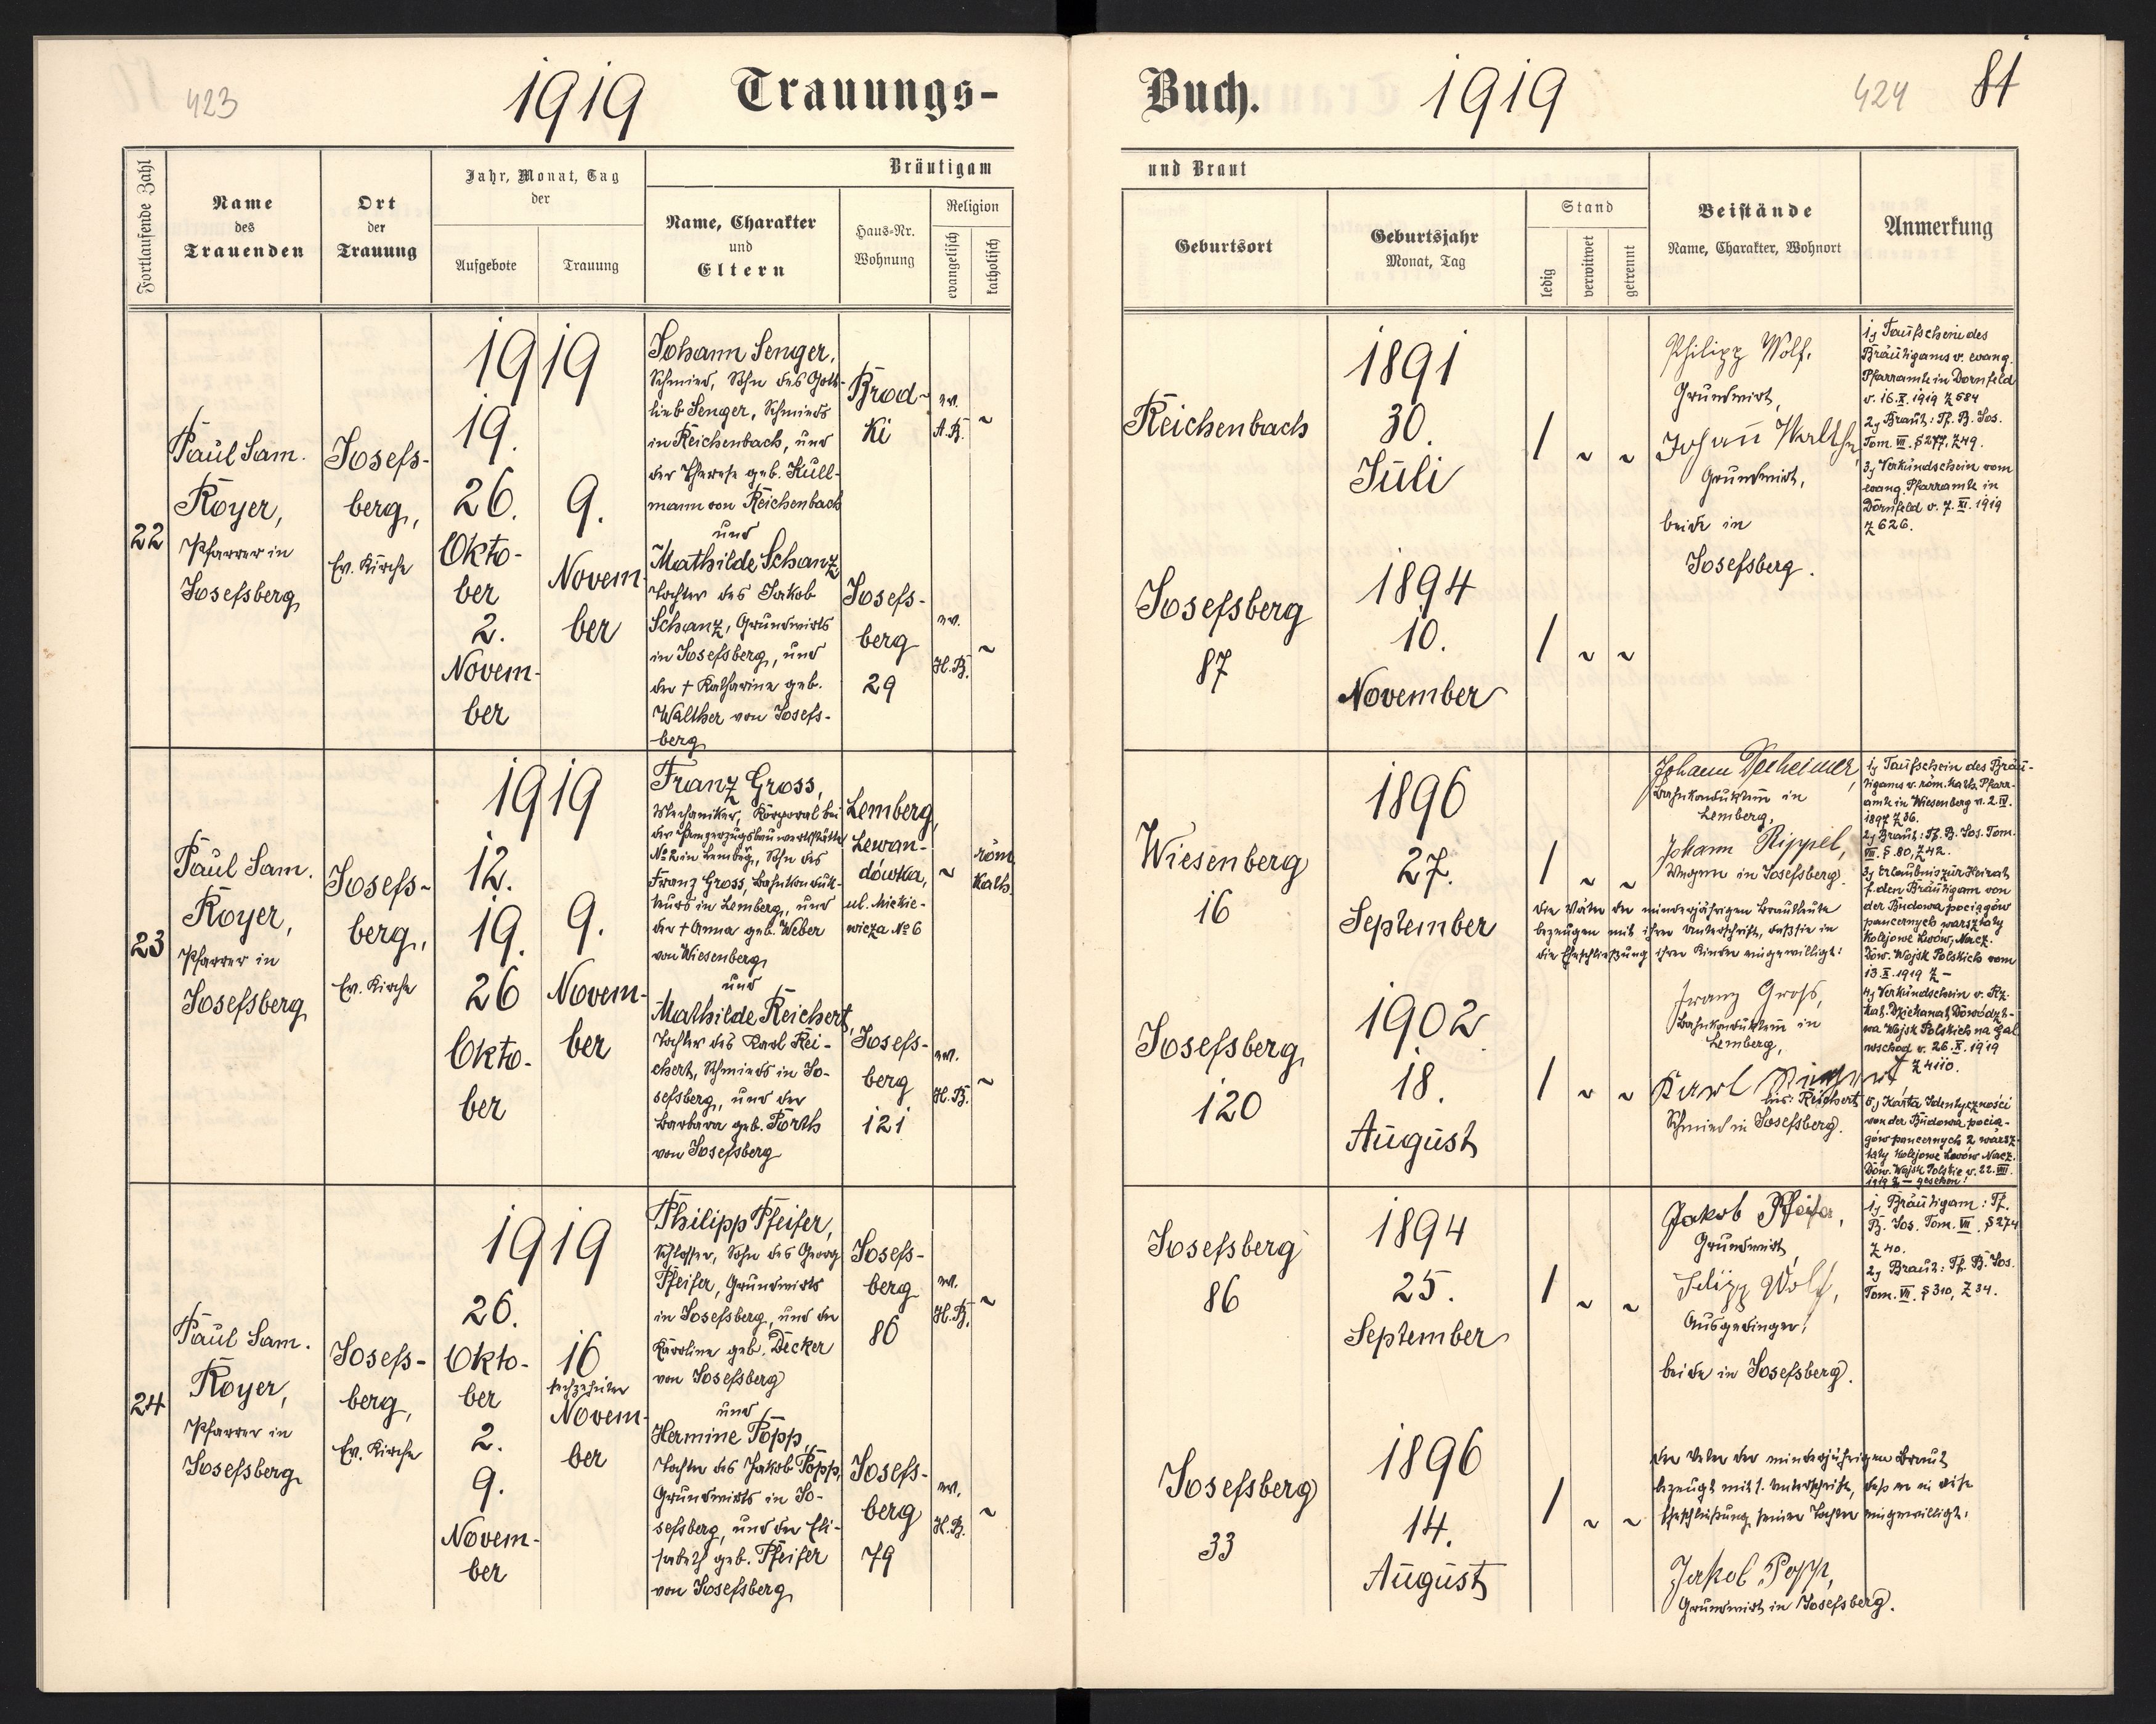 423
1919
Trauungs-
Fortlaufende Zahl
Name
des
Trauenden
Ort
der
Trauung
Jahr, Monat, Tag
der
Aufgebote
Trauung
Bräutigam
Name, Charakter
und
Eltern
Haus-Nr.
Wohnung
Religion
evangelisch
katholisch
22
Paul Sam.
Royer,
Pfarrer in
Josefsberg
Josefs-
berg,
Ev. Kirche
1919
19.
26.
Okto-
ber
2.
Novem-
ber
9.
Novem-
ber
Johann Senger,
Schmied, Sohn des Gott-
lieb Senger, Schmieds
in Reichenbach, und
der Therese geb. Kull-
mann von Reichenbach
und
Mathilde Schanz
Tochter des Jakob
Schanz, Grundwirts
in Josefsberg, und
der † Katharine geb.
Walther von Josefs-
berg
Brod-
ki
ev.
A.B.
~
Josefs-
berg
29
ev.
H.B.
~
23
Paul Sam.
Royer,
Pfarrer in
Josefsberg
Josefs-
berg,
Ev. Kirche
1919
12.
19.
26
Okto-
ber
9.
Novem-
ber
Franz Gross,
Mechaniker, Korporal bei
der Panzerzugsbauwerkstätte
№ 2 in Lemberg, Sohn des
Franz Gross, Bahnkonduk-
teurs in Lemberg, und
der † Anna geb. Weber
von Wiesenberg
und
Mathilde Reichert,
Tochter des Karl Rei-
chert, Schmieds in Jo-
sefsberg, und der
Barbara geb. Porth
von Josefsberg
Lemberg,
Lewan-
dówka,
ul. Mickie-
wicza № 6
~
röm.
kath.
Josefs-
berg
121
ev.
H.B.
~
24
Paul Sam.
Royer,
Pfarrer in
Josefsberg
Josefs-
berg,
Ev. Kirche
1919
26.
Okto-
ber
2.
9.
Novem-
ber
16
sechzehnter
Novem-
ber
Philipp Pfeifer,
Schlosser, Sohn des Georg
Pfeifer, Grundwirts
in Josefsberg, und der
Karoline geb. Decker
von Josefsberg
und
Hermine Popp,
Tochter des Jakob Popp,
Grundwirts in Jo-
sefsberg, und der Eli-
sabeth geb. Pfeifer
von Josefsberg
Josefs-
berg
86
ev.
H.B.
~
Josefs-
berg
79
ev.
H.B.
~
Buch.
1919
424
81
und Braut
Geburtsort
Geburtsjahr
Monat, Tag
Stand
ledig
verwitwet
getrennt
Beistände
Name, Charakter, Wohnort
Anmerkung
Reichenbach
1891
30.
Juli
1 ~ ~
Josefsberg
87
1894
10.
November
1 ~ ~
Philipp Wolf,
Grundwirt,
Johann Walther,
Grundwirt,
beide in
Josefsberg.
1, Taufschein des
Bräutigams v. evang.
Pfarramte in Dornfeld
v. 16.X.1919 Z 584
2, Braut: Tf. B. Jos.
Tom. VII. § 277, Z 49.
3, Verkündschein vom
evang. Pfarramte in
Dornfeld v. 7.XI.1919
Z 626.
Wiesenberg
16
1896
27.
September
1 ~ ~
Josefsberg
120
1902
18.
August
1 ~ ~
Johann
Bahnkondukteur in
Lemberg,
Johann Rippel,
Wagner in Josefsberg.
Die Väter der minderjährigen Brautleute
bezeugen mit ihrer Unterschrift, daß sie in
die Eheschließung ihrer Kinder eingewilligt:
Franz Gross,
Bahnkondukteur in
Lemberg,
Karl
Reichert
Schmied in Josefsberg.
1, Taufschein des Bräu-
tigams v. röm. kath. Pfarr-
amte in Wiesenberg v. 2.IV.
1897 Z 36.
2, Braut: Tf. B. Jos. Tom.
VIII. § 80, Z 42.
3, Erlaubnis zur Heirat
f. den Bräutigam von
der Budowa pociągów
pancernych warsztaty
Kolejowe Lwów, Nacz.
Dow. Wojsk Polskich vom
13.X.1919 Z —
4, Verkündschein v. Rz.
kat. Dziekanat Dowództ-
wa Wojsk Polskich na Gal
wschod v. 26.X.1919
Z 4110.
5, Karta Identyczności
von der Budowa pocią-
gów pancernych 2 warsz-
taty Kolejowe Lwów Nacz.
Dow. Wojsk Polskie v. 22.VIII.
1919 Z — gesehen!
Josefsberg
86
1894
25.
September
1 ~ ~
Josefsberg
33
1896
14.
August
1 ~ ~
Jakob Pfeifer,
Grundwirt,
Filipp Wolf,
Ausgedinger,
beide in Josefsberg.
Der Vater der minderjährigen Braut
bezeugt mit s. Unterschrift, daß er in diese
Eheschließung seiner Tochter eingewilligt:
Jakob Popp,
Grundwirt in Josefsberg.
1, Bräutigam: Tf.
B. Jos. Tom. VII. § 274
Z 40.
2, Braut: Tf. B. Jos.
Tom. VII. § 310, Z 34.